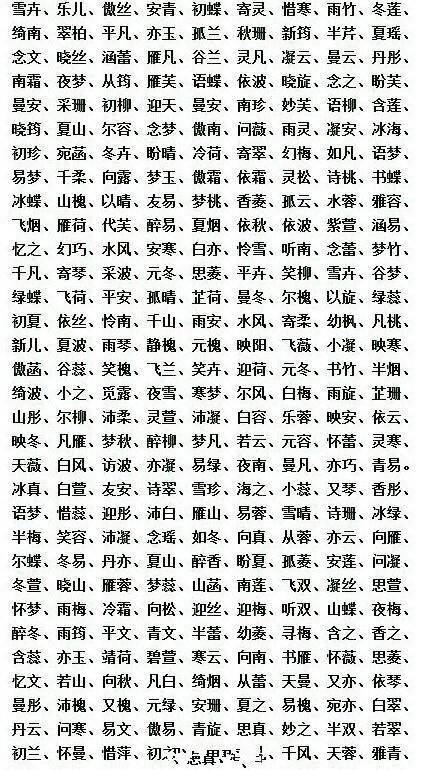 雪卉、乐儿、傲丝、安青、初蝶、寄灵、惜寒、雨竹、冬莲、
绮南、翠柏、平凡、亦玉、孤兰、秋珊、新筠、半芹、夏瑶、
念文、晓丝、涵蕾、雁凡、谷兰、灵凡、凝云、曼云、丹彤、
南霜、夜梦、从筠、雁芙、语蝶、依波、晓旋、念之、盼芙、
曼安、采珊、初柳、迎天、曼安、南珍、妙芙、语柳、含莲、
晓筠、夏山、尔容、念梦、傲南、问薇、雨灵、凝安、冰海、
初珍、宛菡、冬卉、盼晴、冷荷、寄翠、幻梅、如凡、语梦、
易梦、千柔、向露、梦玉、傲霜、依霜、灵松、诗桃、书蝶、
冰蝶、山槐、以晴、友易、梦桃、香菱、孤云、水蓉、雅容、
飞烟、雁荷、代芙、醉易、夏烟、依秋、依波、紫萱、涵易、
忆之、幻巧、水风、安寒、白亦、怜雪、听南、念蕾、梦竹、
千凡、寄琴、采波、元冬、思菱、平卉、笑柳、雪卉、谷梦、
绿蝶、飞荷、平安、孤晴、芷荷、曼冬、尔槐、以旋、绿蕊、
初夏、依丝、怜南、千山、雨安、水风、寄柔、幼枫、凡桃、
新儿、夏波、雨琴、静槐、元槐、映阳、飞薇、小凝、映寒、
傲菡、谷蕊、笑槐、飞兰、笑卉、迎荷、元冬、书竹、半烟、
绮波、小之、觅露、夜雪、寒梦、尔风、白梅、雨旋、芷珊、
山彤、尔柳、沛柔、灵萱、沛凝、白容、乐蓉、映安、依云、
映冬、凡雁、梦秋、醉柳、梦凡、若云、元容、怀蕾、灵寒、
天薇、白风、访波、亦凝、易绿、夜南、曼凡、亦巧、青易。
冰真、白萱、友安、诗翠、雪珍、海之、小蕊、又琴、香彤、
语梦、惜蕊、迎彤、沛白、雁山、易蓉、雪晴、诗珊、冰绿、
半梅、笑容、沛凝、念瑶、如冬、向真、从蓉、亦云、向雁、
尔蝶、冬易、丹亦、夏山、醉香、盼夏、孤菱、安莲、问凝、
冬萱、晓山、雁蓉、梦蕊、山菡、南莲、飞双、凝丝、思萱、
怀梦、雨梅、冷霜、向松、迎丝、迎梅、听双、山蝶、夜梅、
醉冬、雨筠、平文、青文、半蕾、幼菱、寻梅、含之、香之、
含蕊、亦玉、靖荷、碧萱、寒云、向南、书雁、怀薇、思菱、
忆文、若山、向秋、凡白、绮烟、从蕾、天曼、又亦、依琴、
曼彤、沛槐、又槐、元绿、安珊、夏之、易槐、宛亦、白翠、
丹云、问寒、易文、傲易、青旋、思真、妙之、半双、若翠、
初兰、怀曼、惜萍、初之、千风、天蓉、雅青、